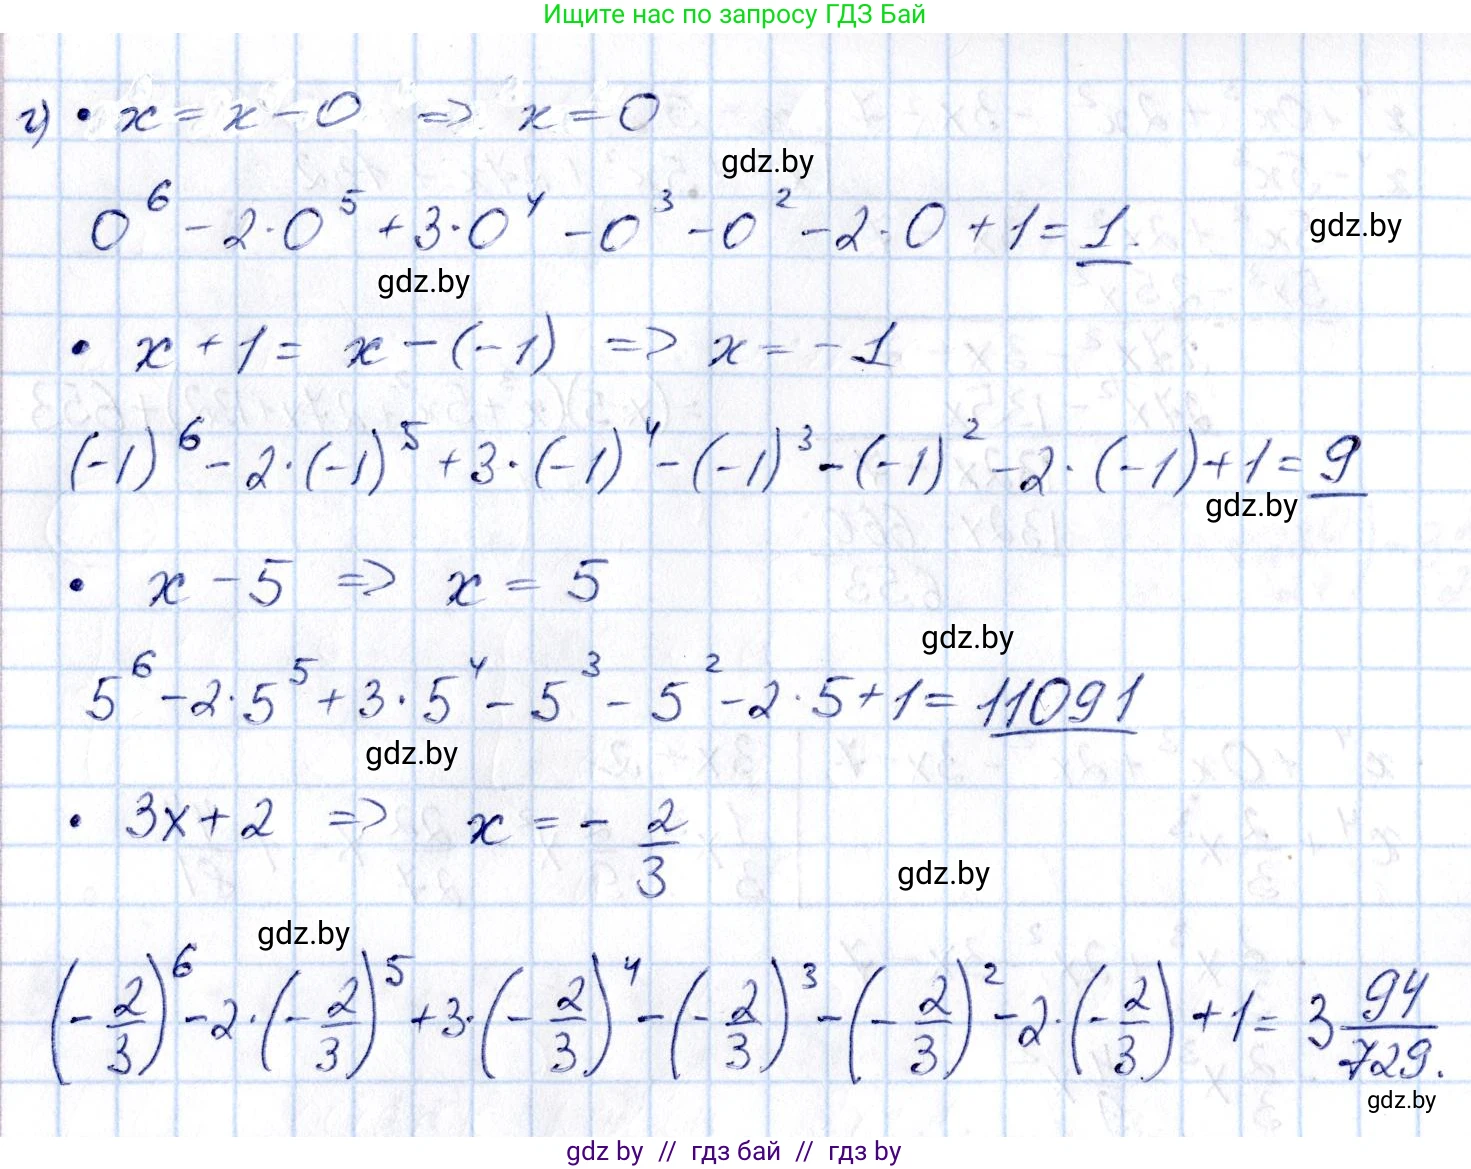 Ищите нас по запросу ГДЗ Бай
г) • x = x - 0 => x = 0
gdz.by
0^6 - 2·0^5 + 3·0^4 - 0^3 - 0^2 - 2·0 + 1 = 1.
gdz.by
gdz.by
• x + 1 = x - (-1) => x = -1
(-1)^6 - 2·(-1)^5 + 3·(-1)^4 - (-1)^3 - (-1)^2 - 2·(-1) + 1 = 9
gdz.by
• x - 5 => x = 5
gdz.by
5^6 - 2·5^5 + 3·5^4 - 5^3 - 5^2 - 2·5 + 1 = 11091
gdz.by
• 3x + 2 => x = - 2/3
gdz.by
gdz.by
(-2/3)^6 - 2·(-2/3)^5 + 3·(-2/3)^4 - (-2/3)^3 - (-2/3)^2 - 2·(-2/3) + 1 = 3 94/729.
gdz.by
gdz by // гдз бай // гдз by